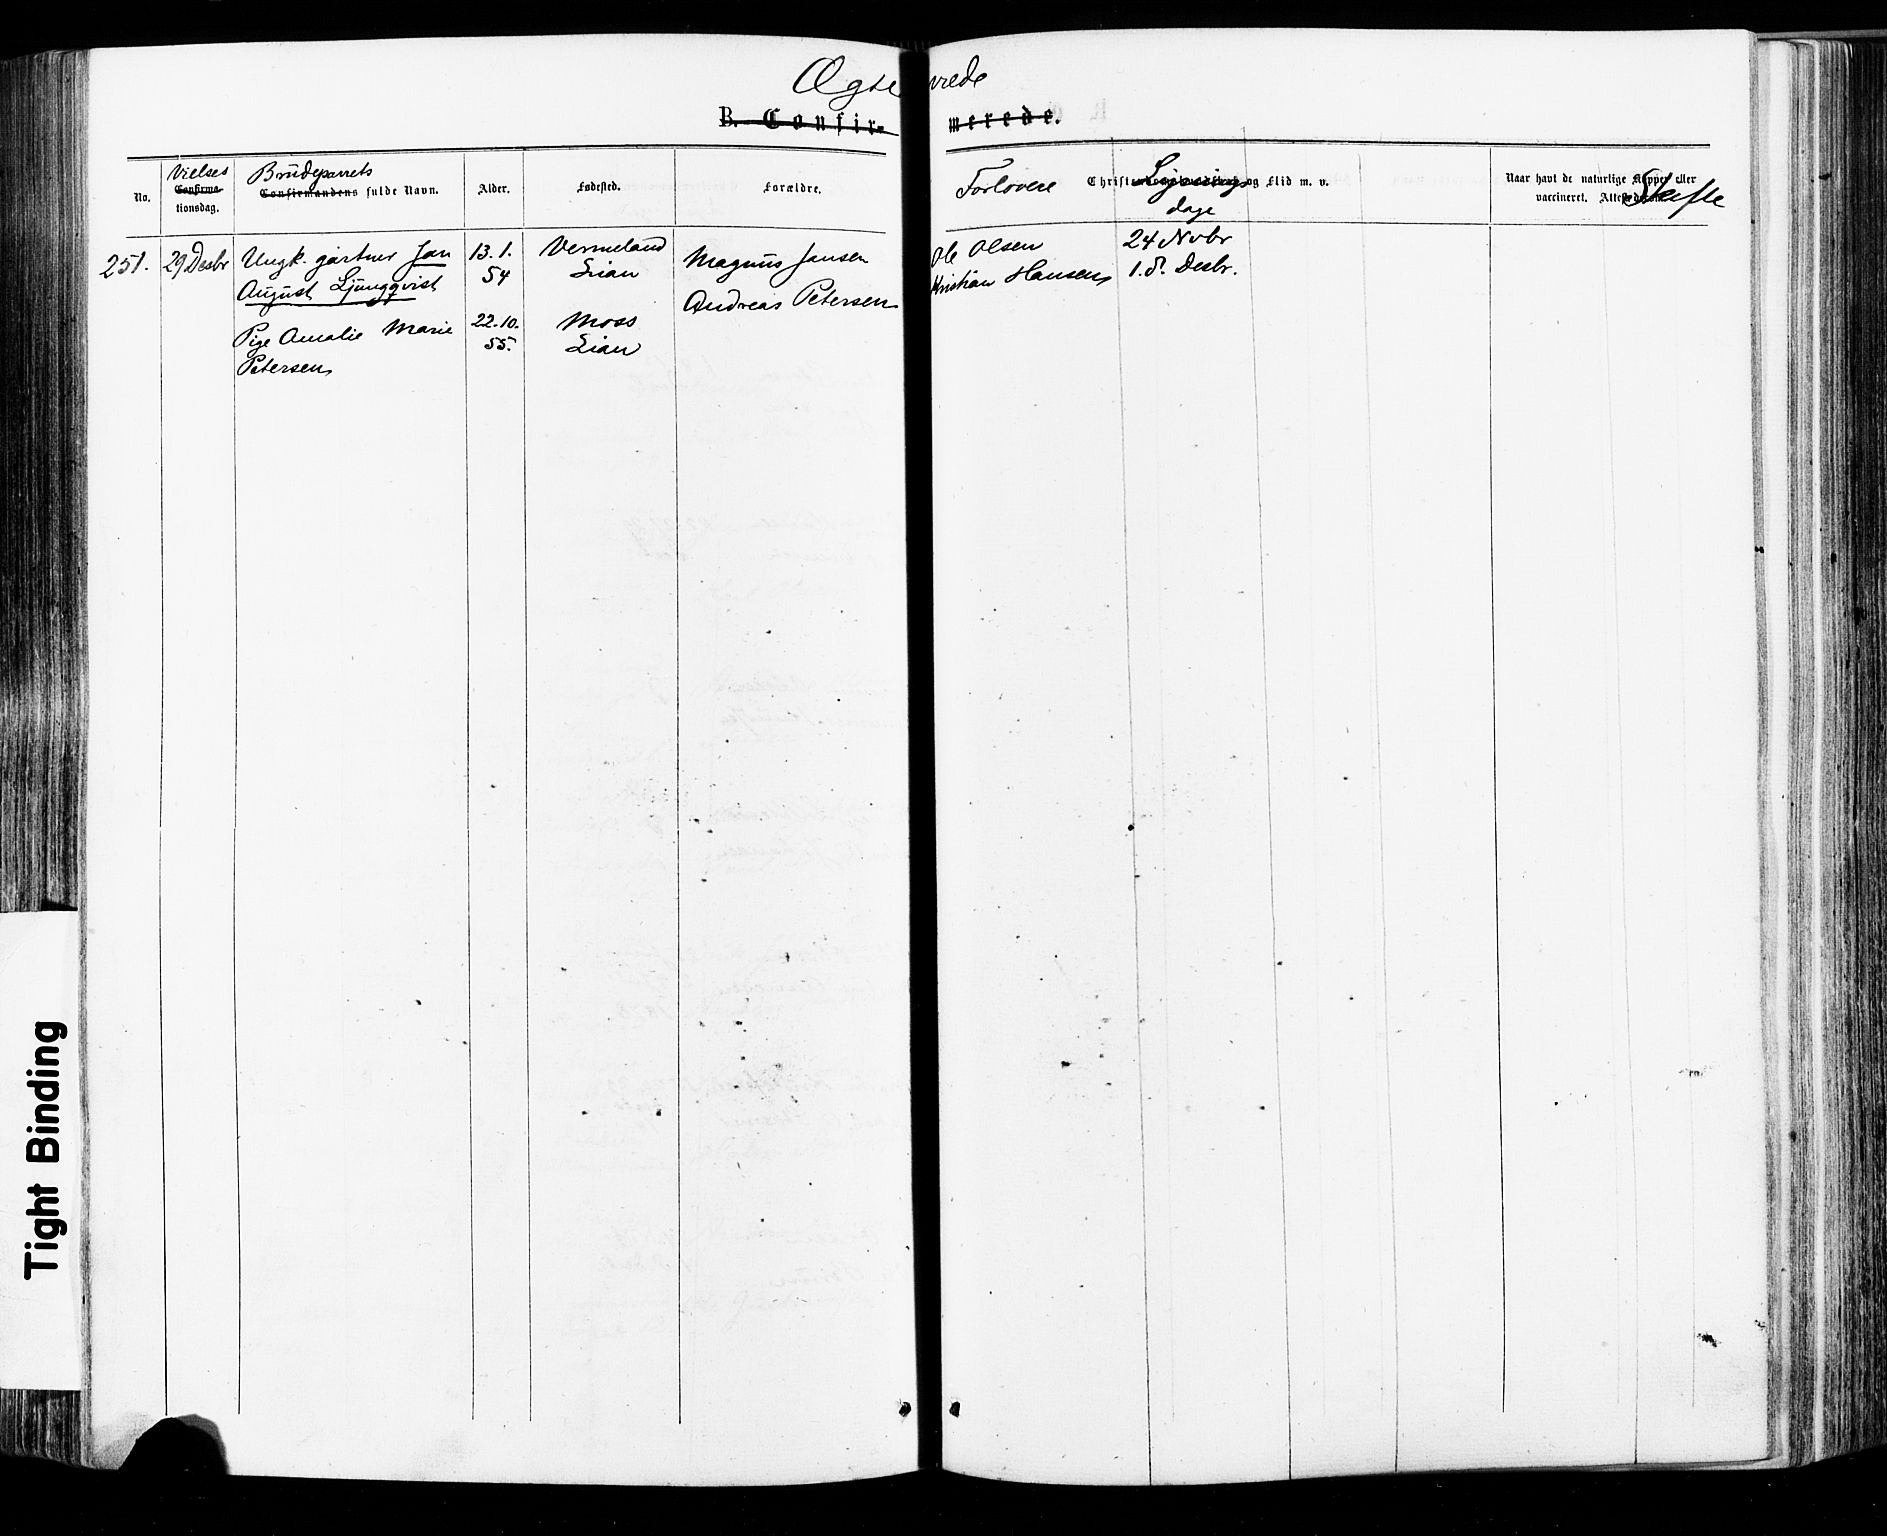 Ægteviede
B. Confirmerede.
No.
Vielses
Confirma-
tionsdag.
Brudeparrets
Confirmandens fulde Navn.
Alder.
Fødested.
Forældre.
Forlovere
Lysnings
dage
og Flid m. v.
Naar havt de naturlige Kopper eller
vaccineret.
Skifte
251.
29 Desbr
Ungk. gartner Jan
August Ljungqvist
Pige Amalie Marie
Petersen
13. 1.
54
22. 10.
55.
Vermeland
Lian
Moss
Lian
Magnus Jansen
Andreas Petersen
Ole Olsen
Kristian Hansen
24 Novbr
1. 8. Desbr.
Tight Binding